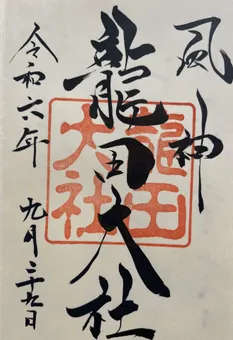 風神
龍田大社
龍田大社
令和六年 九月二十九日